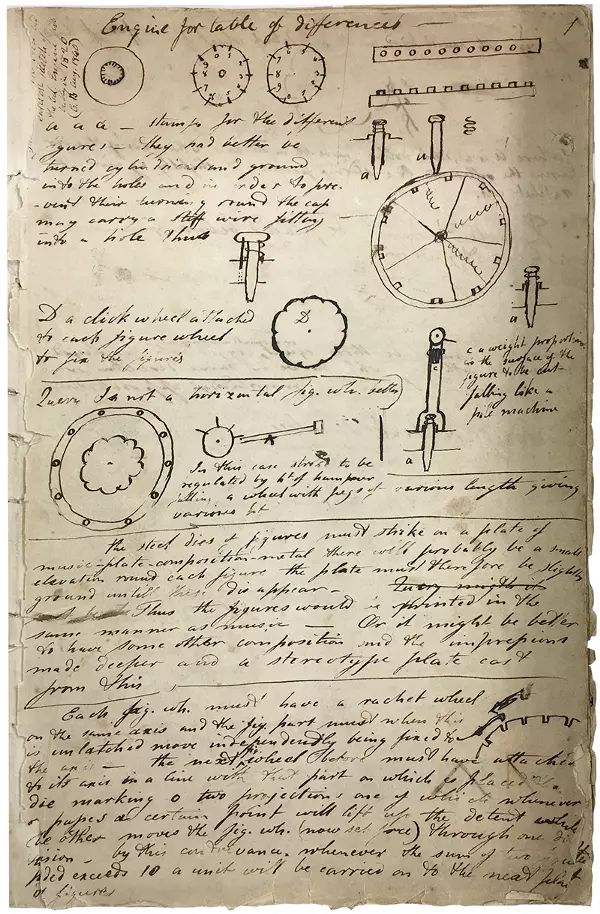 Engine for table of differences —
1
a a a — stamps for the different
figures — they had better be
turned cylindrical and ground
into the holes and in order to pre-
-vent their turning round the cap
may carry a stiff wire fitting
into a hole thus
a
a
a
D
D a click wheel attached
to each figure wheel
to fix the figures
c a weight proportion
to the surface of the
figure to be cut
falling like a
pile machine
c
a
Query Is not a horizontal fig. wh. better
In this case stroke to be
regulated by ht of hammer
falling a wheel with pegs of various length giving
various ht
The steel dies of figures must strike on a plate of
music-plate-composition-metal there will probably be a small
elevation round each figure the plate must therefore be slightly
ground until these die appear — Query might it
Thus the figures would be printed in the
same manner as music — Or it might be better
to have some other composition and the impressions
made deeper and a stereotype plate cast
from this
Each fig. wh. must have a rachet wheel
on the same axis and the fig. part must when this
is unlatched move independently being fixed to
the axis — the next fig. wheel before must have attached
to its axis in a line with that part on which is placed the
die marking 0 two projections one of which whenever
0 passes a certain point will lift up the detent while
the other moves the fig. wh. (now set free) through one di
vision — by this contrivance whenever the sum of two figures
added exceeds 10 a unit will be carried on to the next place
of figures